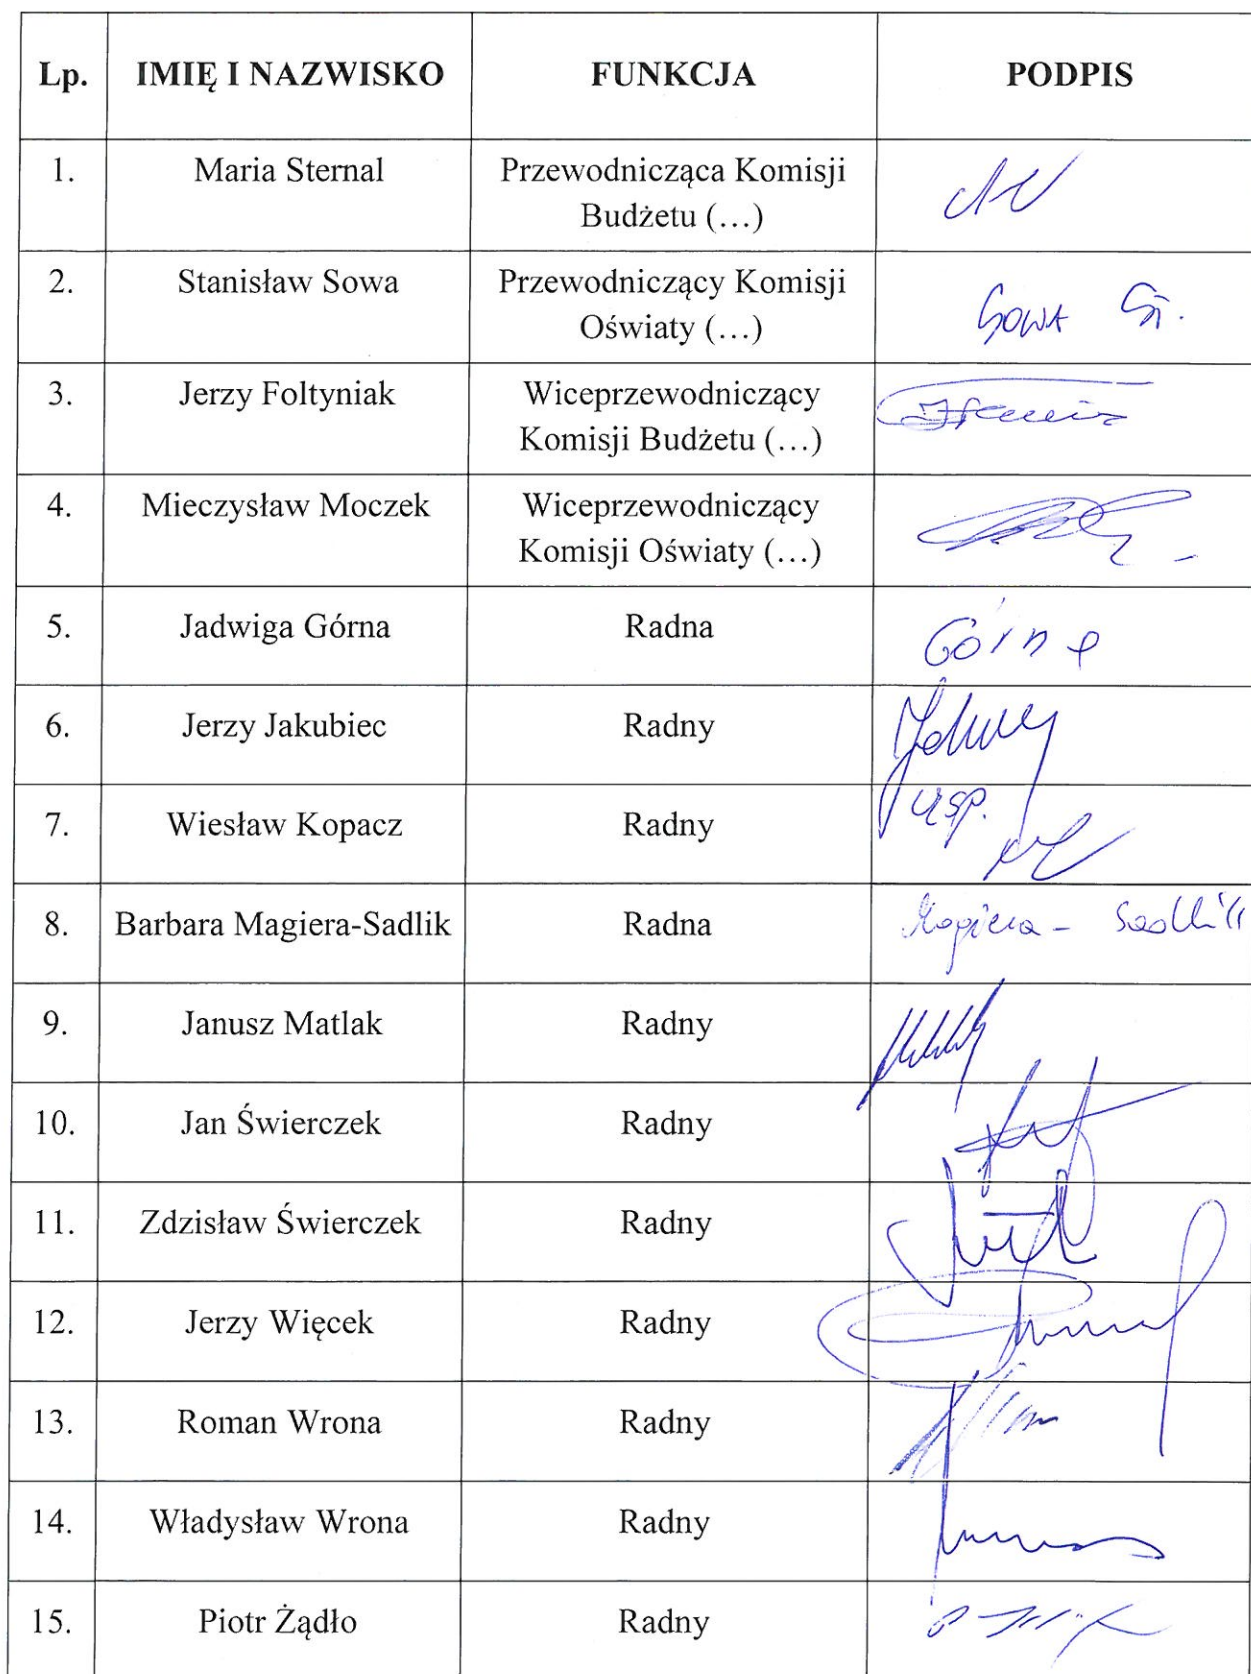 Lp. IMIĘ I NAZWISKO FUNKCJA PODPIS
1. Maria Sternal Przewodnicząca Komisji
Budżetu (…)
2. Stanisław Sowa Przewodniczący Komisji
Oświaty (…) Sowa St.
3. Jerzy Foltyniak Wiceprzewodniczący
Komisji Budżetu (…)
4. Mieczysław Moczek Wiceprzewodniczący
Komisji Oświaty (…)
5. Jadwiga Górna Radna Górna
6. Jerzy Jakubiec Radny
7. Wiesław Kopacz Radny
8. Barbara Magiera-Sadlik Radna Magiera - Sadlik
9. Janusz Matlak Radny
10. Jan Świerczek Radny
11. Zdzisław Świerczek Radny
12. Jerzy Więcek Radny
13. Roman Wrona Radny
14. Władysław Wrona Radny
15. Piotr Żądło Radny